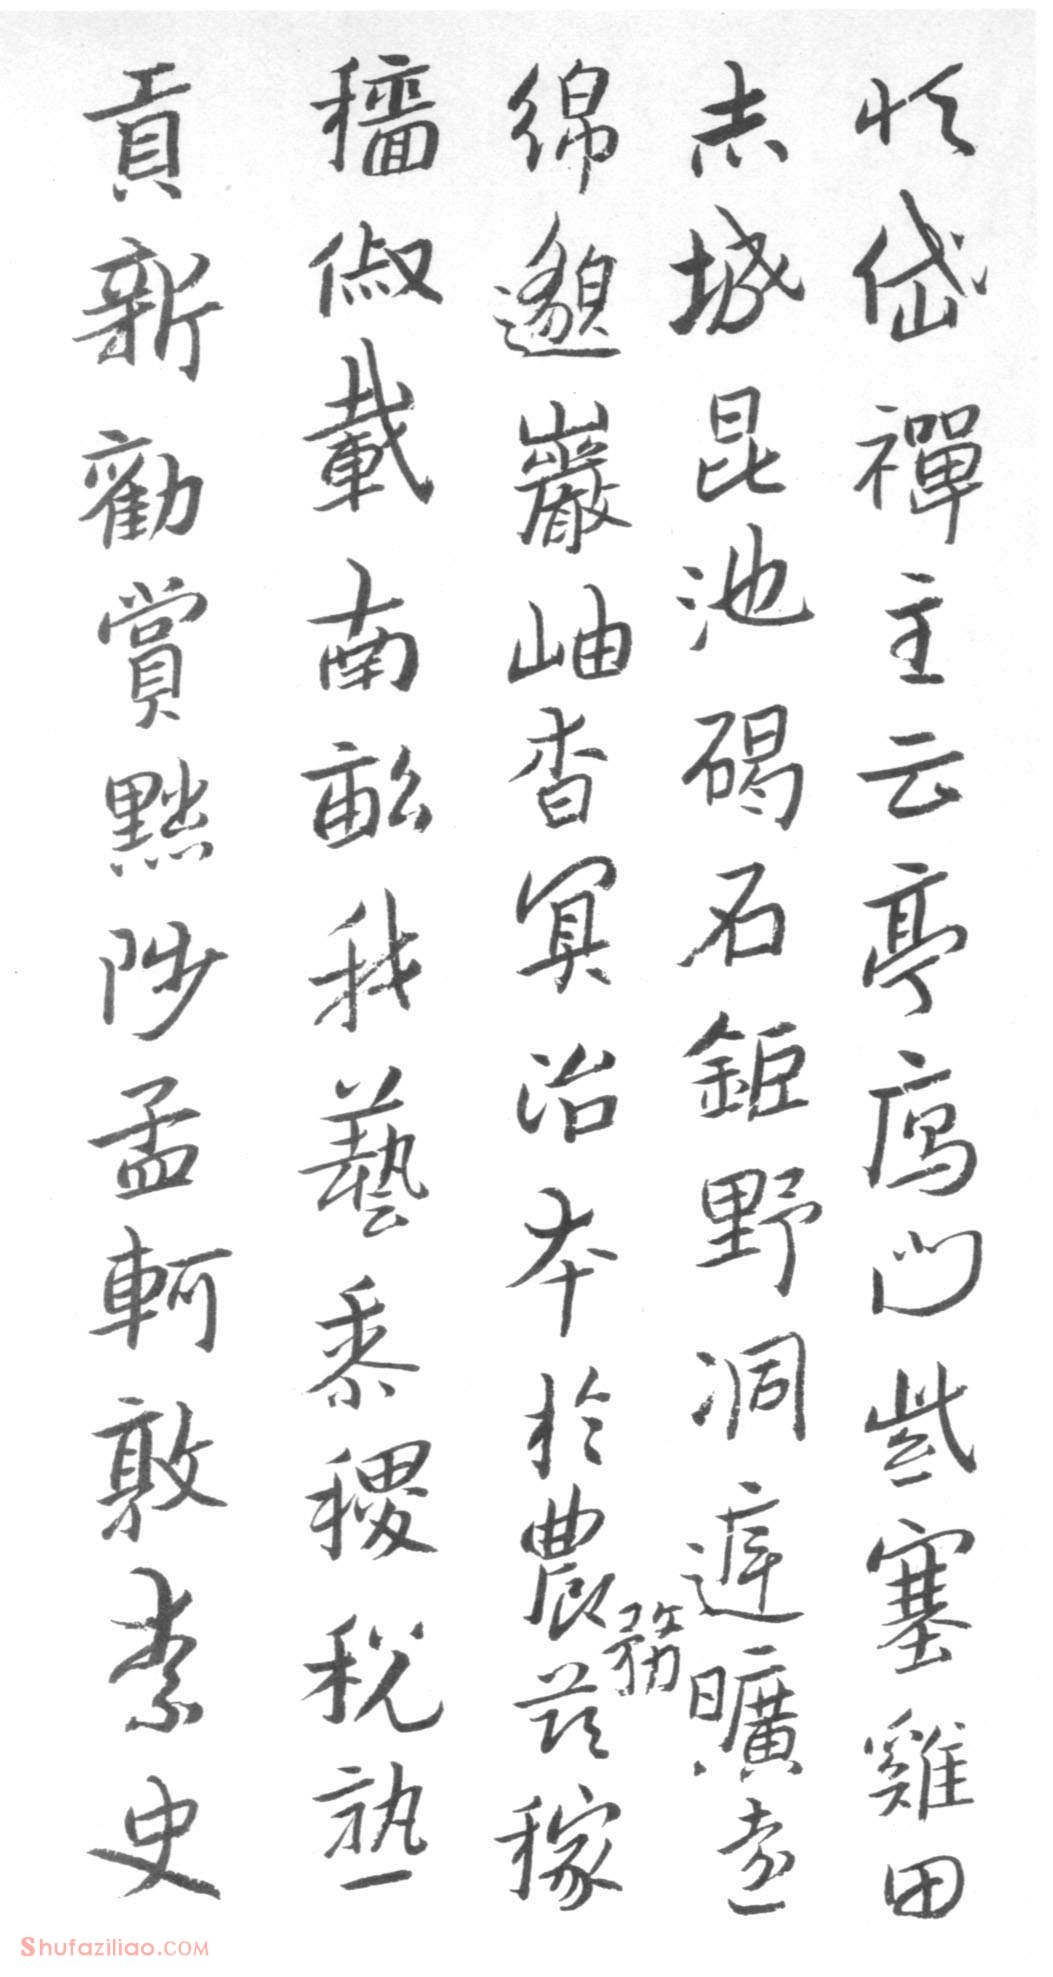 恒岱禪主云亭雁門紫塞雞田
赤城昆池碣石鉅野洞庭曠遠
綿邈巖岫杳冥治本於農務茲稼
穡俶載南畝我藝黍稷稅熟
貢新勸賞黜陟孟軻敦素史
Shufaziliao.COM